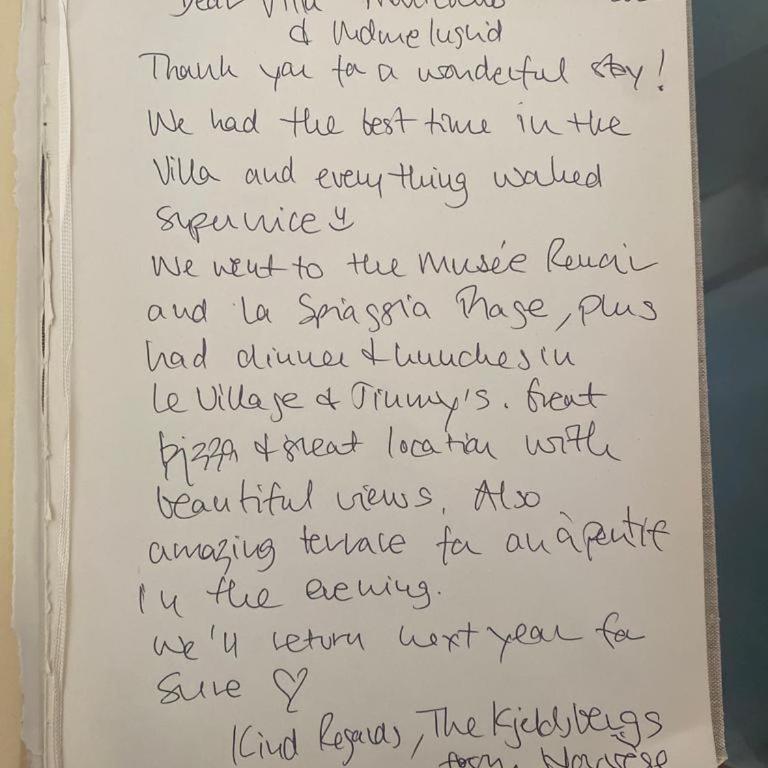 Dear Villa
&
Thank you for a wonderful stay!
We had the best time in the
Villa and everything worked
supernice
We went to the Musée Renoir
and La Spiaggia Plage, plus
had dinner & lunches in
Le Village & Jimmy's. Great
pizza & great location with
beautiful views. Also
amazing terrace for an àperitif
in the evening.
We'll return next year for
sure ♡
Kind Regards, The Kjeldsbergs
from